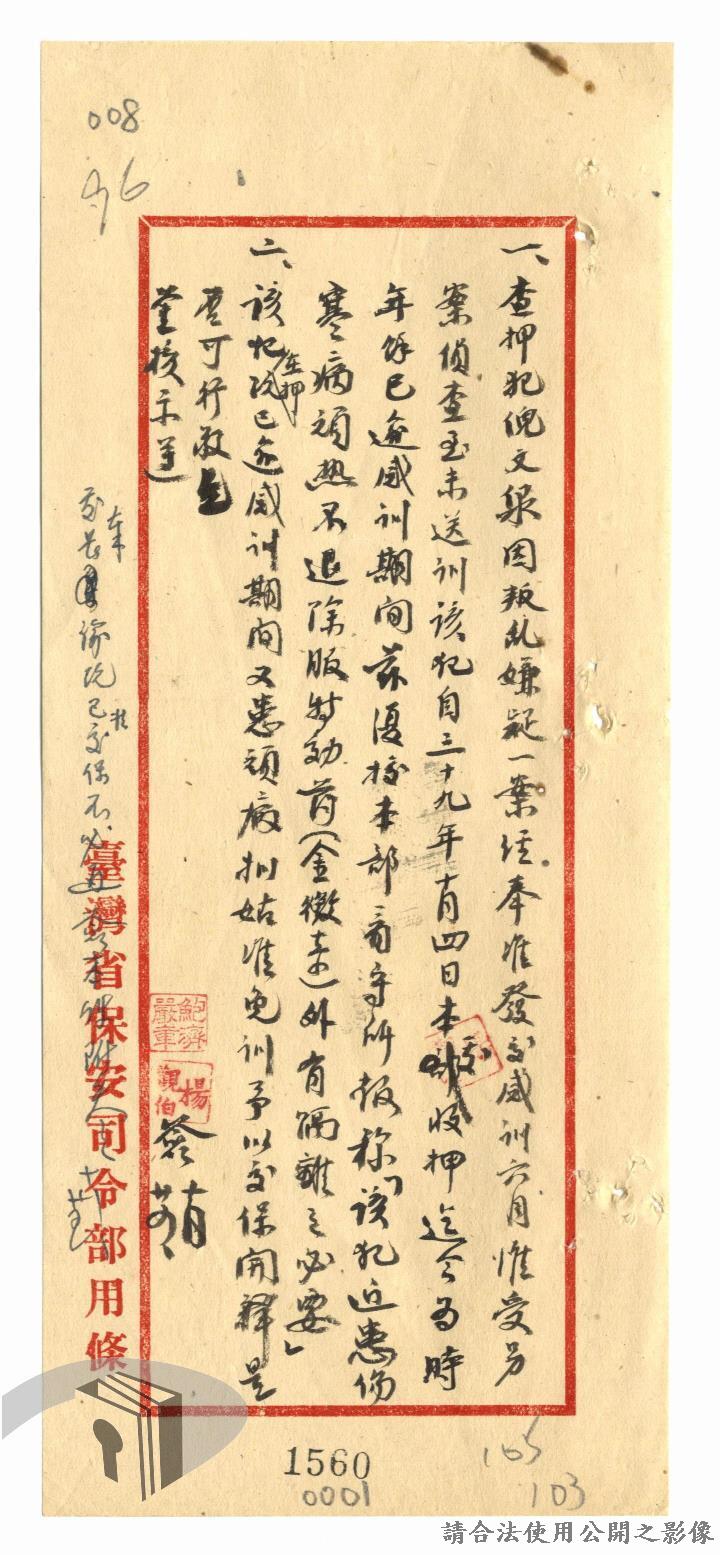 008
一、查押犯倪文㵘因叛乱嫌疑一案經奉准發交感訓六月惟受另
案偵查至未送訓該犯自三十九年十月四日本部收押迄今為時
年餘已逾感訓期间茲復據本部看守所報称「該犯近患伤
寒病頑热不退除服特効药(金黴素)外有隔離之必要」
二、該犯在押既已逾感訓期间又患頑疾擬姑准免訓予以交保開釋是
否可行敬乞
鑒核示遵
鮑濟嚴章
楊覲伯
臺灣省保安司令部用條
1560
0001
105
103
請合法使用公開之影像